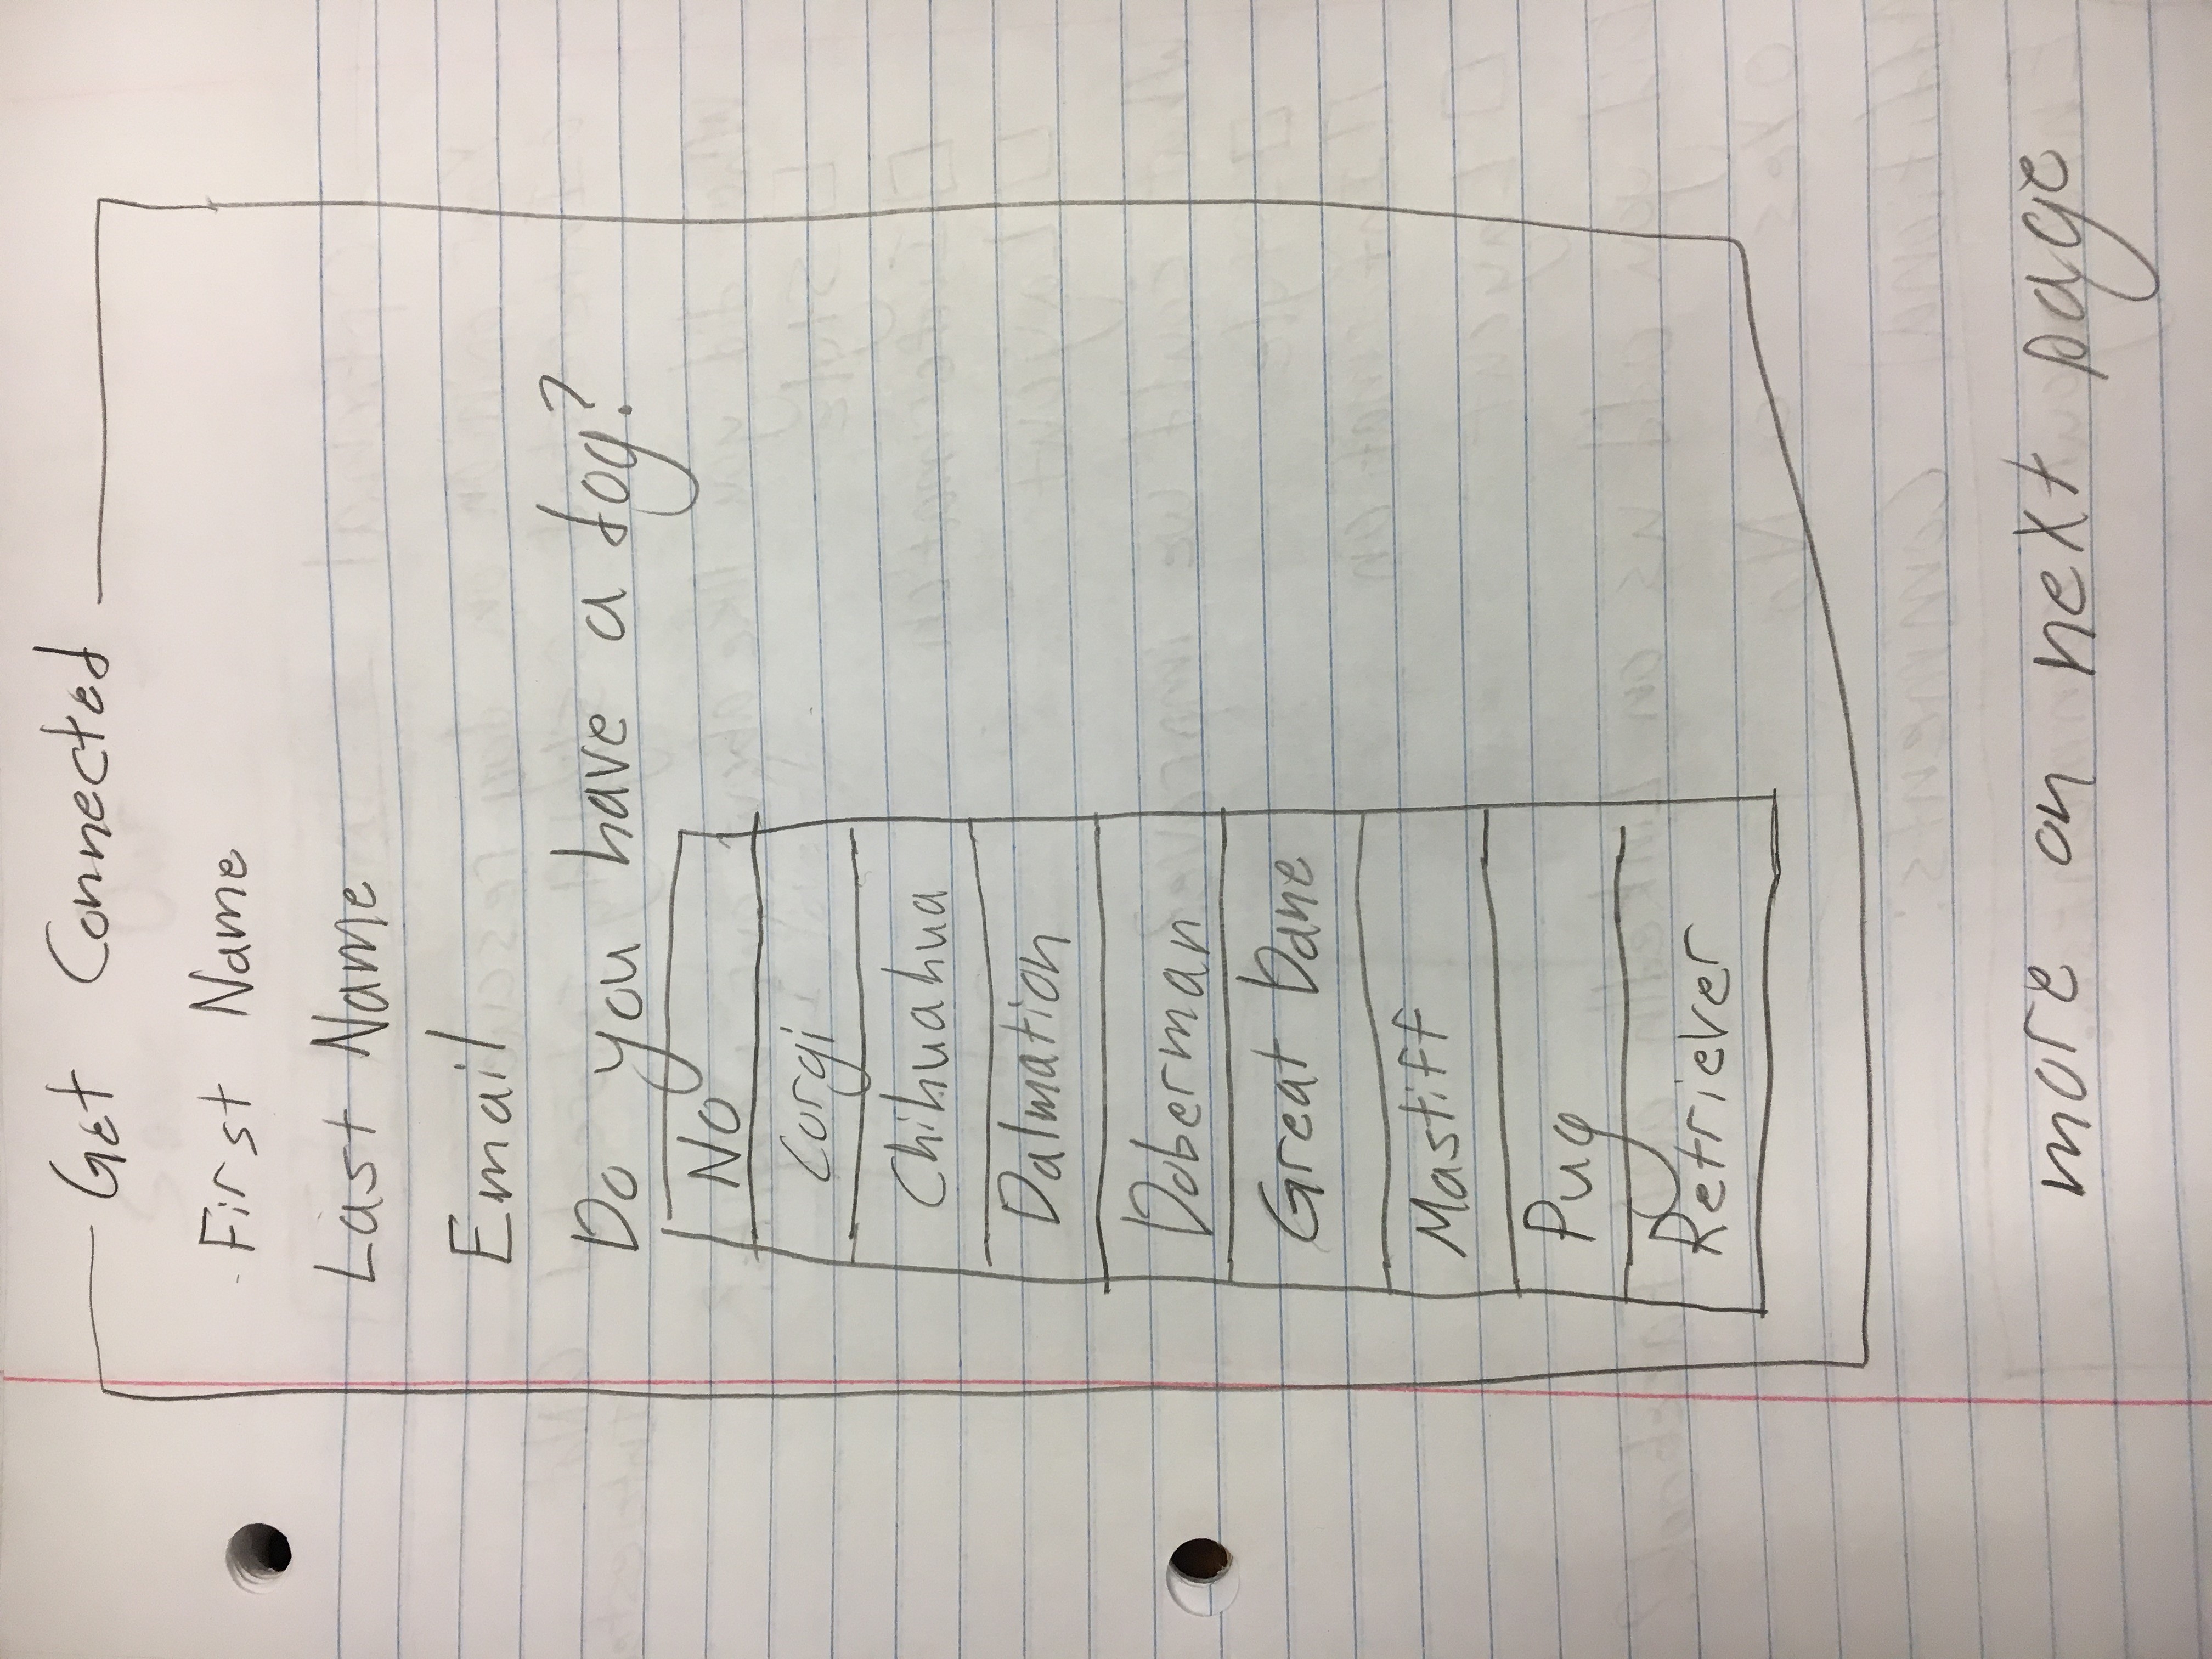 Get Connected
First Name
Last Name
Email
Do you have a dog?
No
Corgi
Chihuahua
Dalmation
Doberman
Great Dane
Mastiff
Pug
Retriever
more on next page